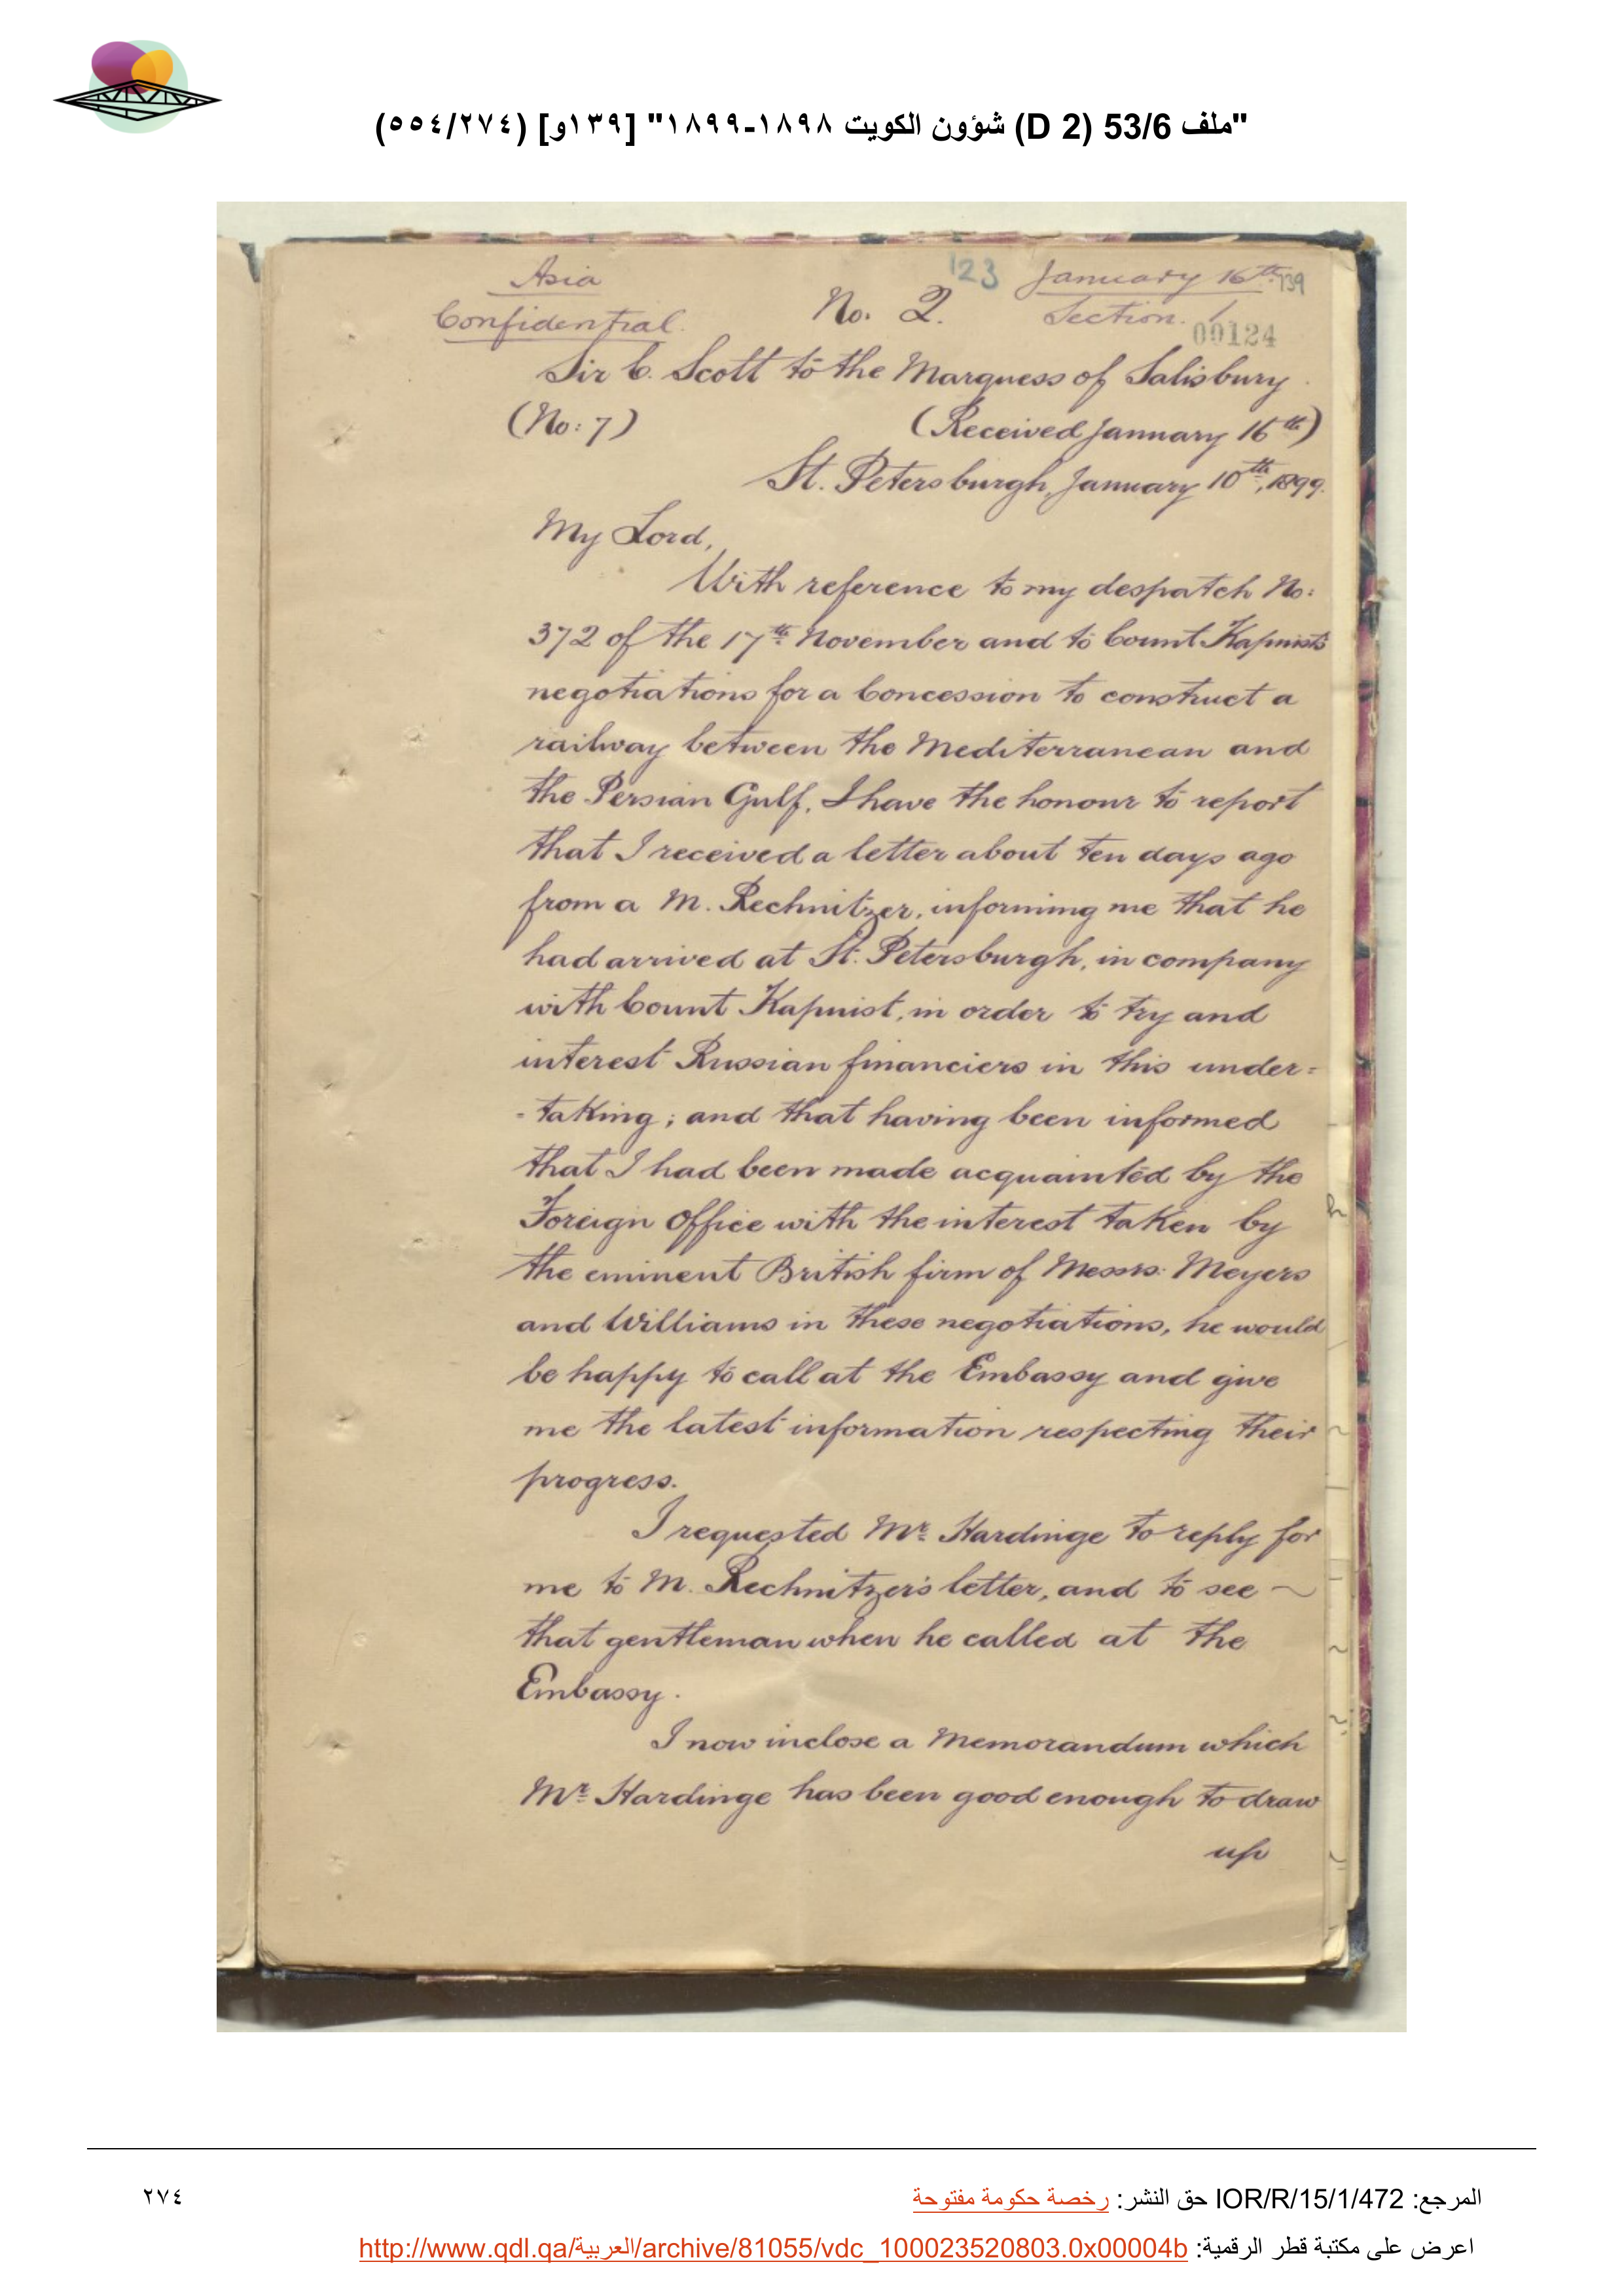 "ملف 53/6 (D 2) شؤون الكويت ١٨٩٨-١٨٩٩" [١٣٩و] (٥٥٤/٢٧٤)
Asia
Confidential.
123
No. 2.
January 16th
139
Section. 1
00124
Sir C. Scott to the Marquess of Salisbury.
(No: 7) (Received January 16th)
St. Petersburgh, January 10th, 1899.
My Lord,
With reference to my despatch No:
372 of the 17th November and to Count Kapnist's
negotiations for a Concession to construct a
railway between the Mediterranean and
the Persian Gulf, I have the honour to report
that I received a letter about ten days ago
from a M. Rechnitzer, informing me that he
had arrived at St. Petersburgh, in company
with Count Kapnist, in order to try and
interest Russian financiers in this under=
-taking; and that having been informed
that I had been made acquainted by the
Foreign Office with the interest taken by
the eminent British firm of Messrs: Meyers
and Williams in these negotiations, he would
be happy to call at the Embassy and give
me the latest information respecting their
progress.
I requested Mr Hardinge to reply for
me to M. Rechnitzer's letter, and to see
that gentleman when he called at the
Embassy.
I now inclose a Memorandum which
Mr Hardinge has been good enough to draw
up
المرجع: IOR/R/15/1/472 حق النشر: رخصة حكومة مفتوحة
٢٧٤
اعرض على مكتبة قطر الرقمية: http://www.qdl.qa/العربية/archive/81055/vdc_100023520803.0x00004b